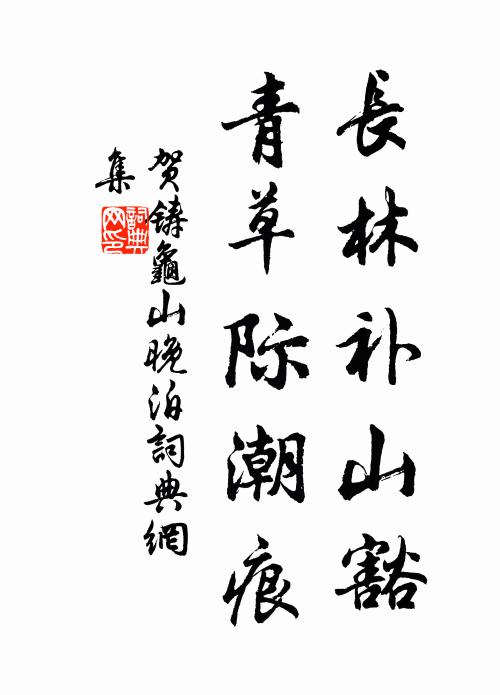 長林补山豁
青草际潮痕
贺铸龜山晚泊詞典網
集
詞典
网印